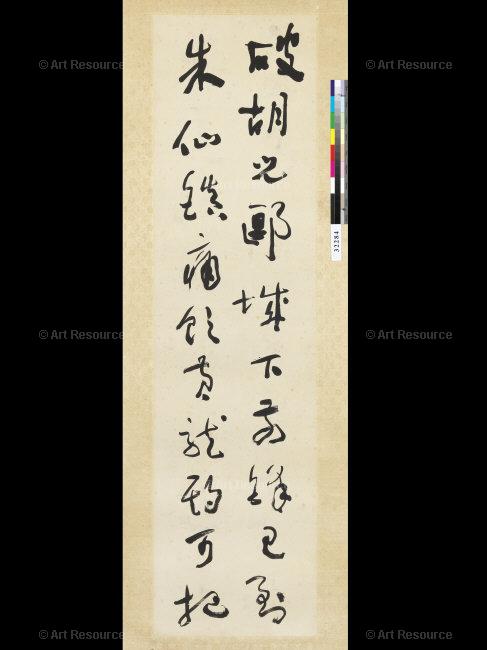 破胡兒郾城下前鋒已到
朱仙鎮痛飲黃龍可把
© Art Resource
© Art Resource
© Art Resource
© Art Resource
© Art Resource
© Art Resource
32284